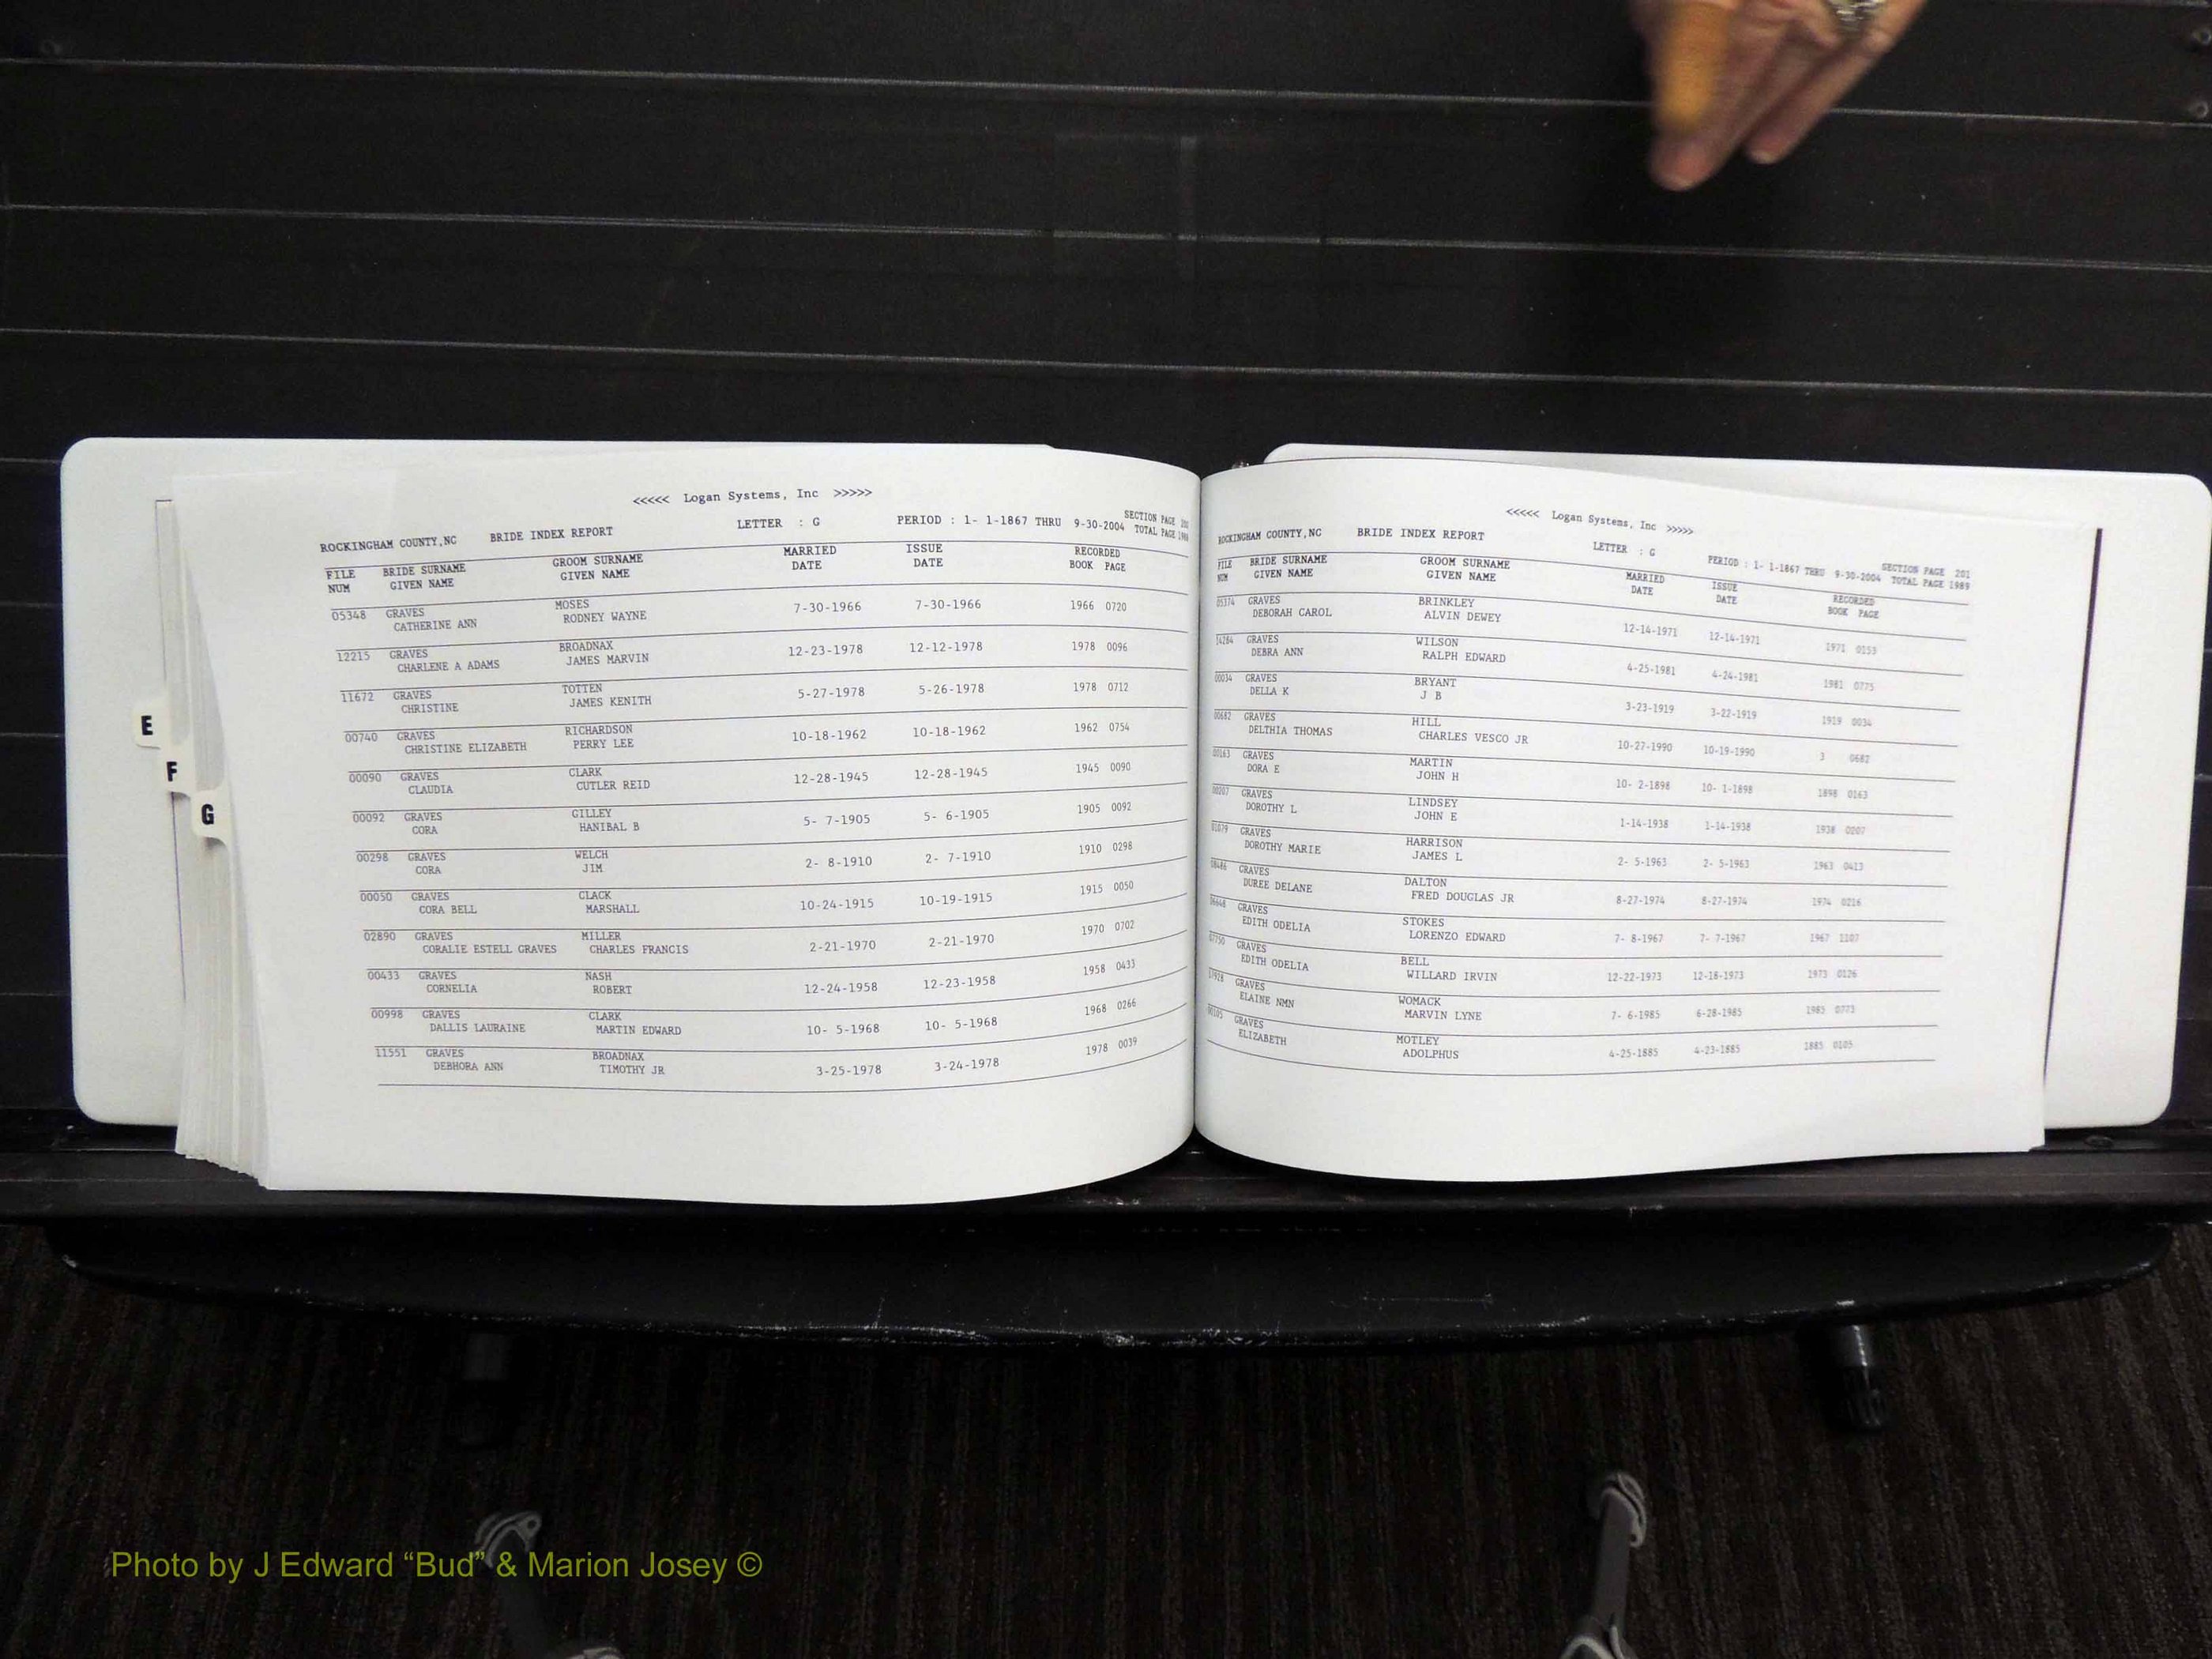 <<<<< Logan Systems, Inc >>>>>
ROCKINGHAM COUNTY,NC BRIDE INDEX REPORT LETTER : G PERIOD : 1- 1-1867 THRU 9-30-2004 SECTION PAGE
TOTAL PAGE
FILE BRIDE SURNAME GROOM SURNAME MARRIED ISSUE RECORDED
NUM GIVEN NAME GIVEN NAME DATE DATE BOOK PAGE
05348 GRAVES MOSES 7-30-1966 7-30-1966 1966 0720
CATHERINE ANN RODNEY WAYNE
12215 GRAVES BROADNAX 12-23-1978 12-12-1978 1978 0096
CHARLENE A ADAMS JAMES MARVIN
11672 GRAVES TOTTEN 5-27-1978 5-26-1978 1978 0712
CHRISTINE JAMES KENITH
00740 GRAVES RICHARDSON 10-18-1962 10-18-1962 1962 0754
CHRISTINE ELIZABETH PERRY LEE
00090 GRAVES CLARK 12-28-1945 12-28-1945 1945 0090
CLAUDIA CUTLER REID
00092 GRAVES GILLEY 5- 7-1905 5- 6-1905 1905 0092
CORA HANIBAL B
00298 GRAVES WELCH 2- 8-1910 2- 7-1910 1910 0298
CORA JIM
00050 GRAVES CLACK 10-24-1915 10-19-1915 1915 0050
CORA BELL MARSHALL
02890 GRAVES MILLER 2-21-1970 2-21-1970 1970 0702
CORALIE ESTELL GRAVES CHARLES FRANCIS
00433 GRAVES NASH 12-24-1958 12-23-1958 1958 0433
CORNELIA ROBERT
00998 GRAVES CLARK 10- 5-1968 10- 5-1968 1968 0266
DALLIS LAURAINE MARTIN EDWARD
11551 GRAVES BROADNAX 3-25-1978 3-24-1978 1978 0039
DEBHORA ANN TIMOTHY JR
E
F
G
<<<<< Logan Systems, Inc >>>>>
ROCKINGHAM COUNTY,NC BRIDE INDEX REPORT LETTER : G PERIOD : 1- 1-1867 THRU 9-30-2004 SECTION PAGE 201
TOTAL PAGE 1989
FILE BRIDE SURNAME GROOM SURNAME MARRIED ISSUE RECORDED
NUM GIVEN NAME GIVEN NAME DATE DATE BOOK PAGE
05374 GRAVES BRINKLEY 12-14-1971 12-14-1971 1971 0153
DEBORAH CAROL ALVIN DEWEY
14284 GRAVES WILSON 4-25-1981 4-24-1981 1981 0775
DEBRA ANN RALPH EDWARD
00034 GRAVES BRYANT 3-23-1919 3-22-1919 1919 0034
DELLA K J B
00682 GRAVES HILL 10-27-1990 10-19-1990 3 0682
DELTHIA THOMAS CHARLES VESCO JR
00163 GRAVES MARTIN 10- 2-1898 10- 1-1898 1898 0163
DORA E JOHN H
00207 GRAVES LINDSEY 1-14-1938 1-14-1938 1938 0207
DOROTHY L JOHN E
01079 GRAVES HARRISON 2- 5-1963 2- 5-1963 1963 0413
DOROTHY MARIE JAMES L
08486 GRAVES DALTON 8-27-1974 8-27-1974 1974 0216
DUREE DELANE FRED DOUGLAS JR
06648 GRAVES STOKES 7- 8-1967 7- 7-1967 1967 1107
EDITH ODELIA LORENZO EDWARD
07750 GRAVES BELL 12-22-1973 12-18-1973 1973 0126
EDITH ODELIA WILLARD IRVIN
17928 GRAVES WOMACK 7- 6-1985 6-28-1985 1985 0773
ELAINE NMN MARVIN LYNE
00105 GRAVES MOTLEY 4-25-1885 4-23-1885 1885 0105
ELIZABETH ADOLPHUS
Photo by J Edward “Bud” & Marion Josey ©